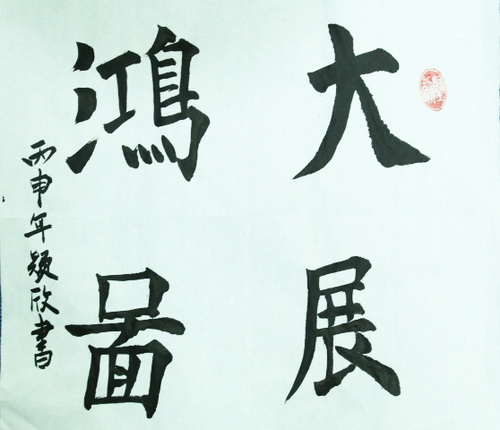 大展
鸿啚
丙申年颖欣書